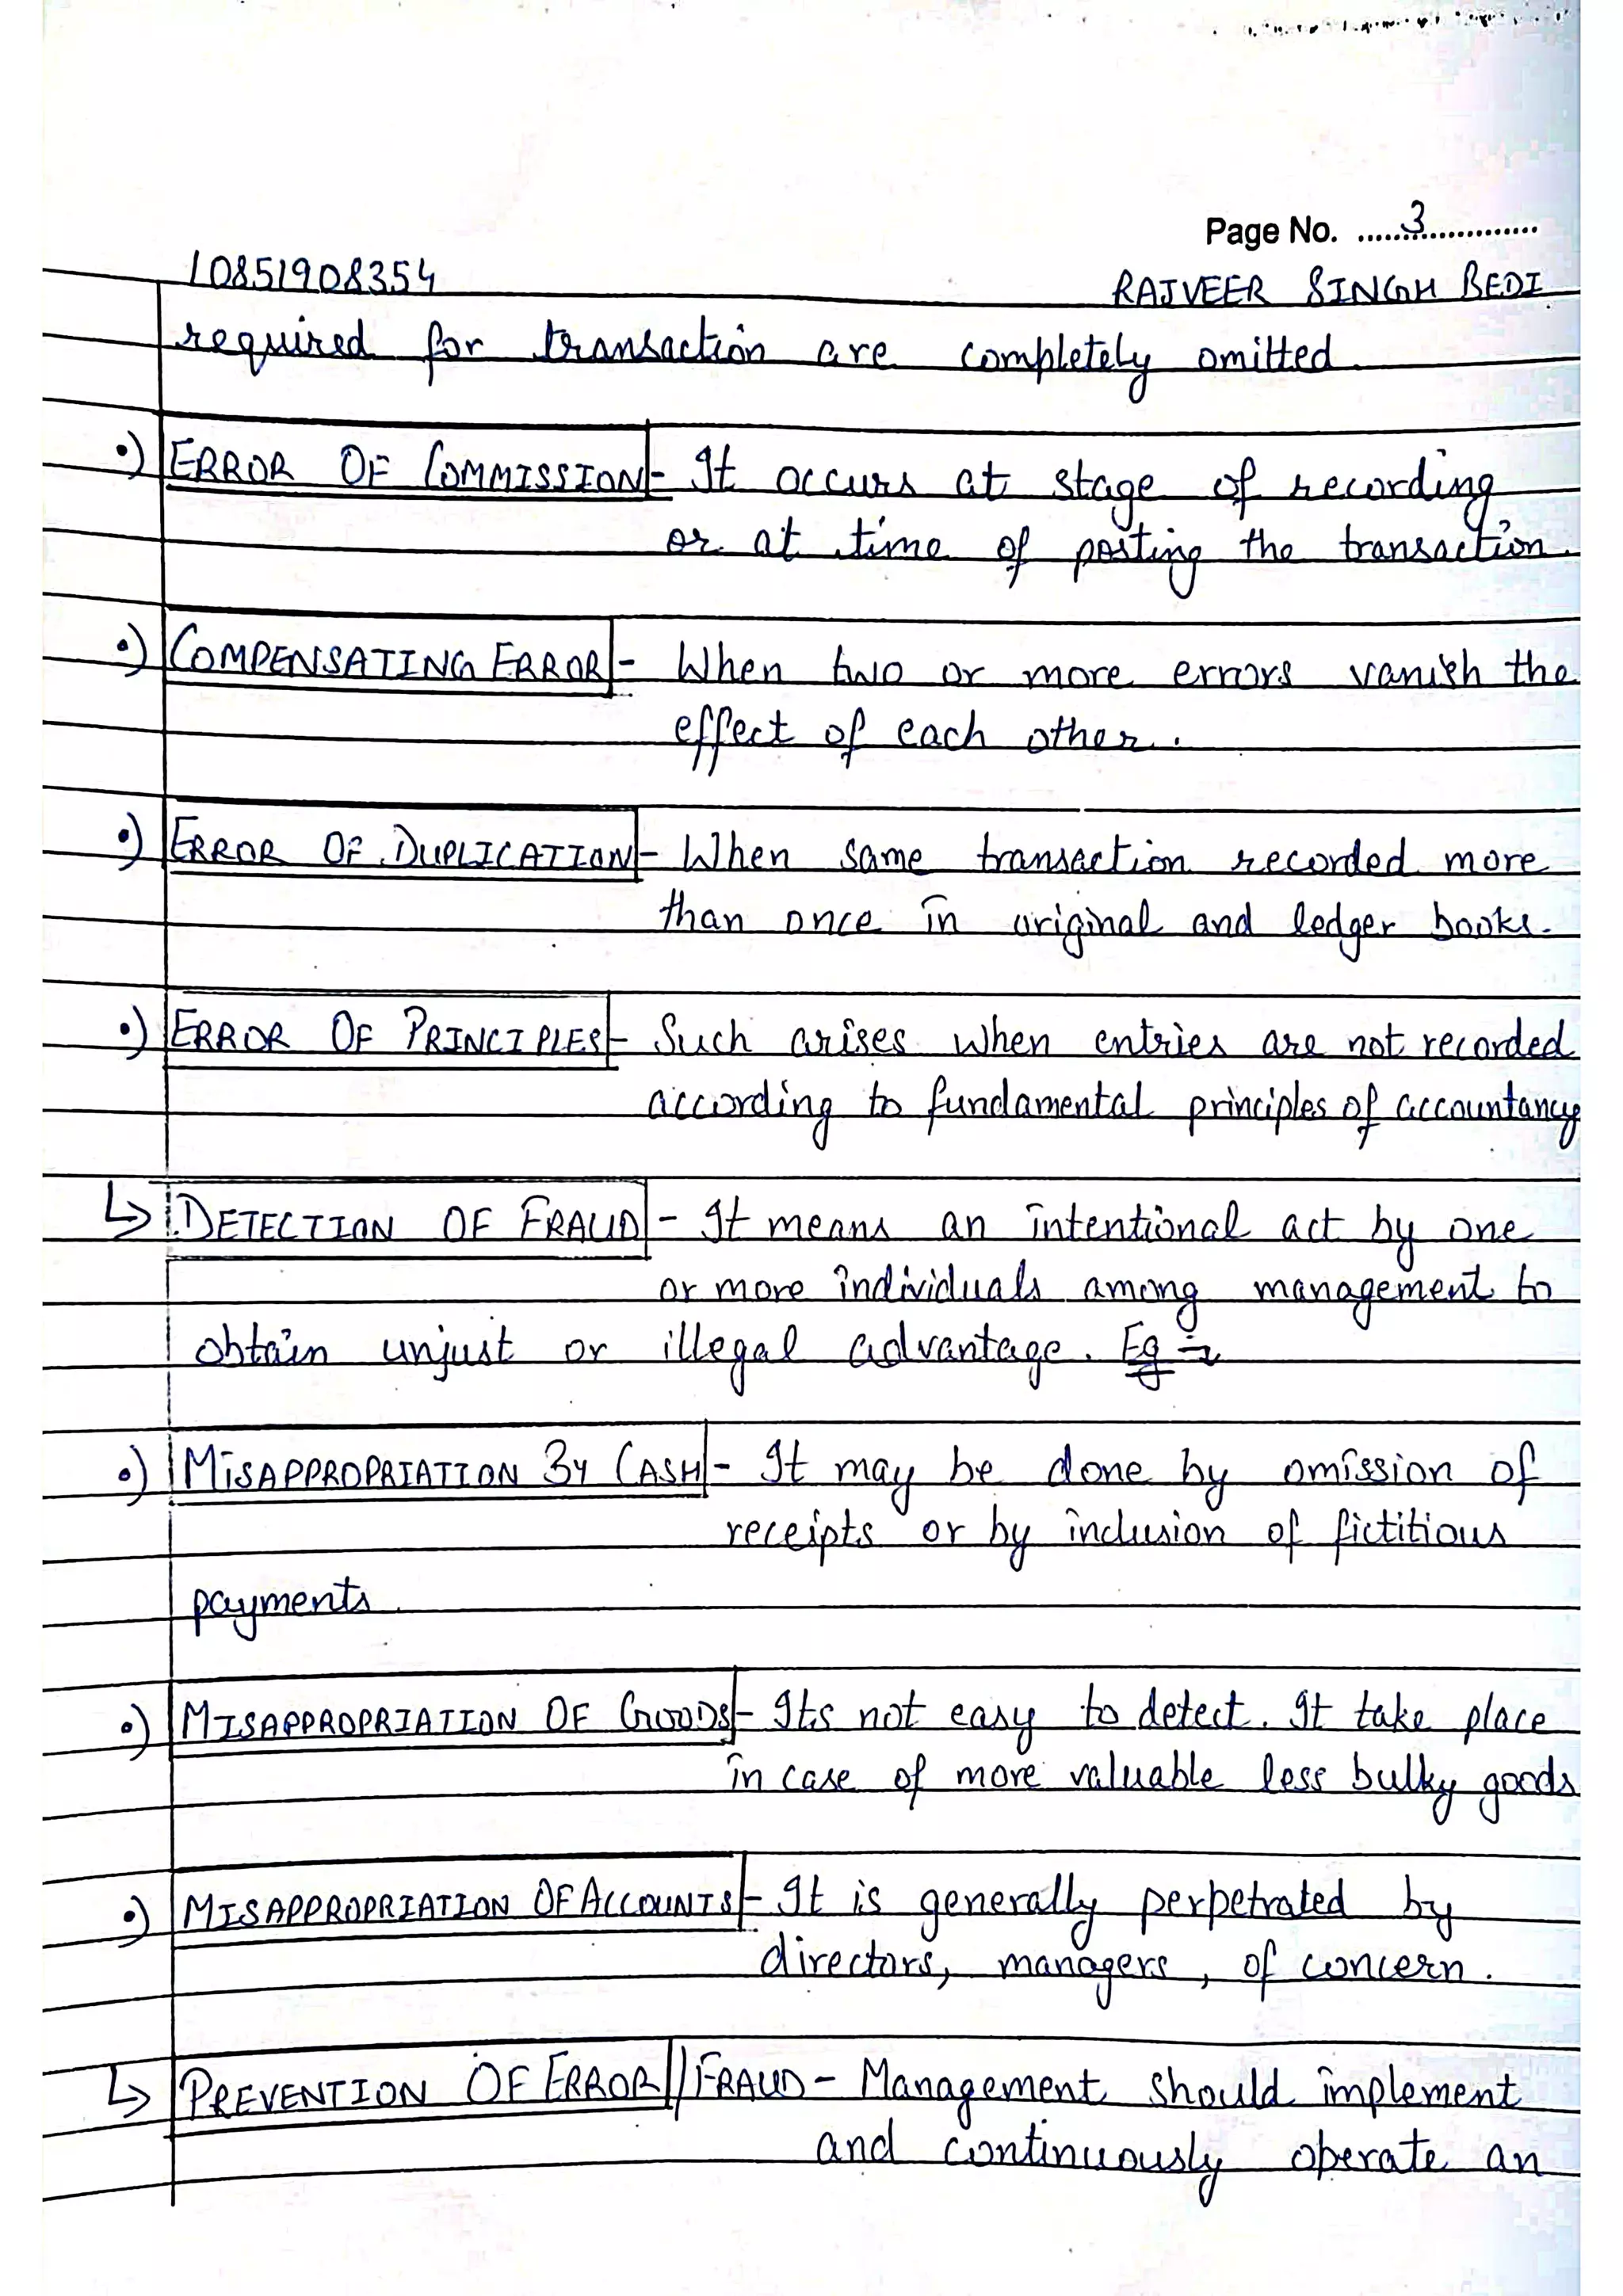 Page No. ......3...............
10851908354 RAJVEER SINGH BEDI
required for transaction are completely omitted
•) ERROR OF COMMISSION - It occurs at stage of recording
or at time of posting the transaction.
•) COMPENSATING ERROR - When two or more errors vanish the
effect of each other.
•) ERROR OF DUPLICATION - When same transaction recorded more
than once in original and ledger books.
•) ERROR OF PRINCIPLES - Such arises when entries are not recorded
according to fundamental principles of accountancy
↳ DETECTION OF FRAUD - It means an intentional act by one
or more individuals among management to
obtain unjust or illegal advantage. Eg :-
•) MISAPPROPRIATION BY CASH - It may be done by omission of
receipts or by inclusion of fictitious
payments.
•) MISAPPROPRIATION OF GOODS - Its not easy to detect. It take place
in case of more valuable less bulky goods
•) MISAPPROPRIATION OF ACCOUNTS - It is generally perpetrated by
directors, managers, of concern.
↳ PREVENTION OF ERROR//FRAUD - Management should implement
and continuously operate an